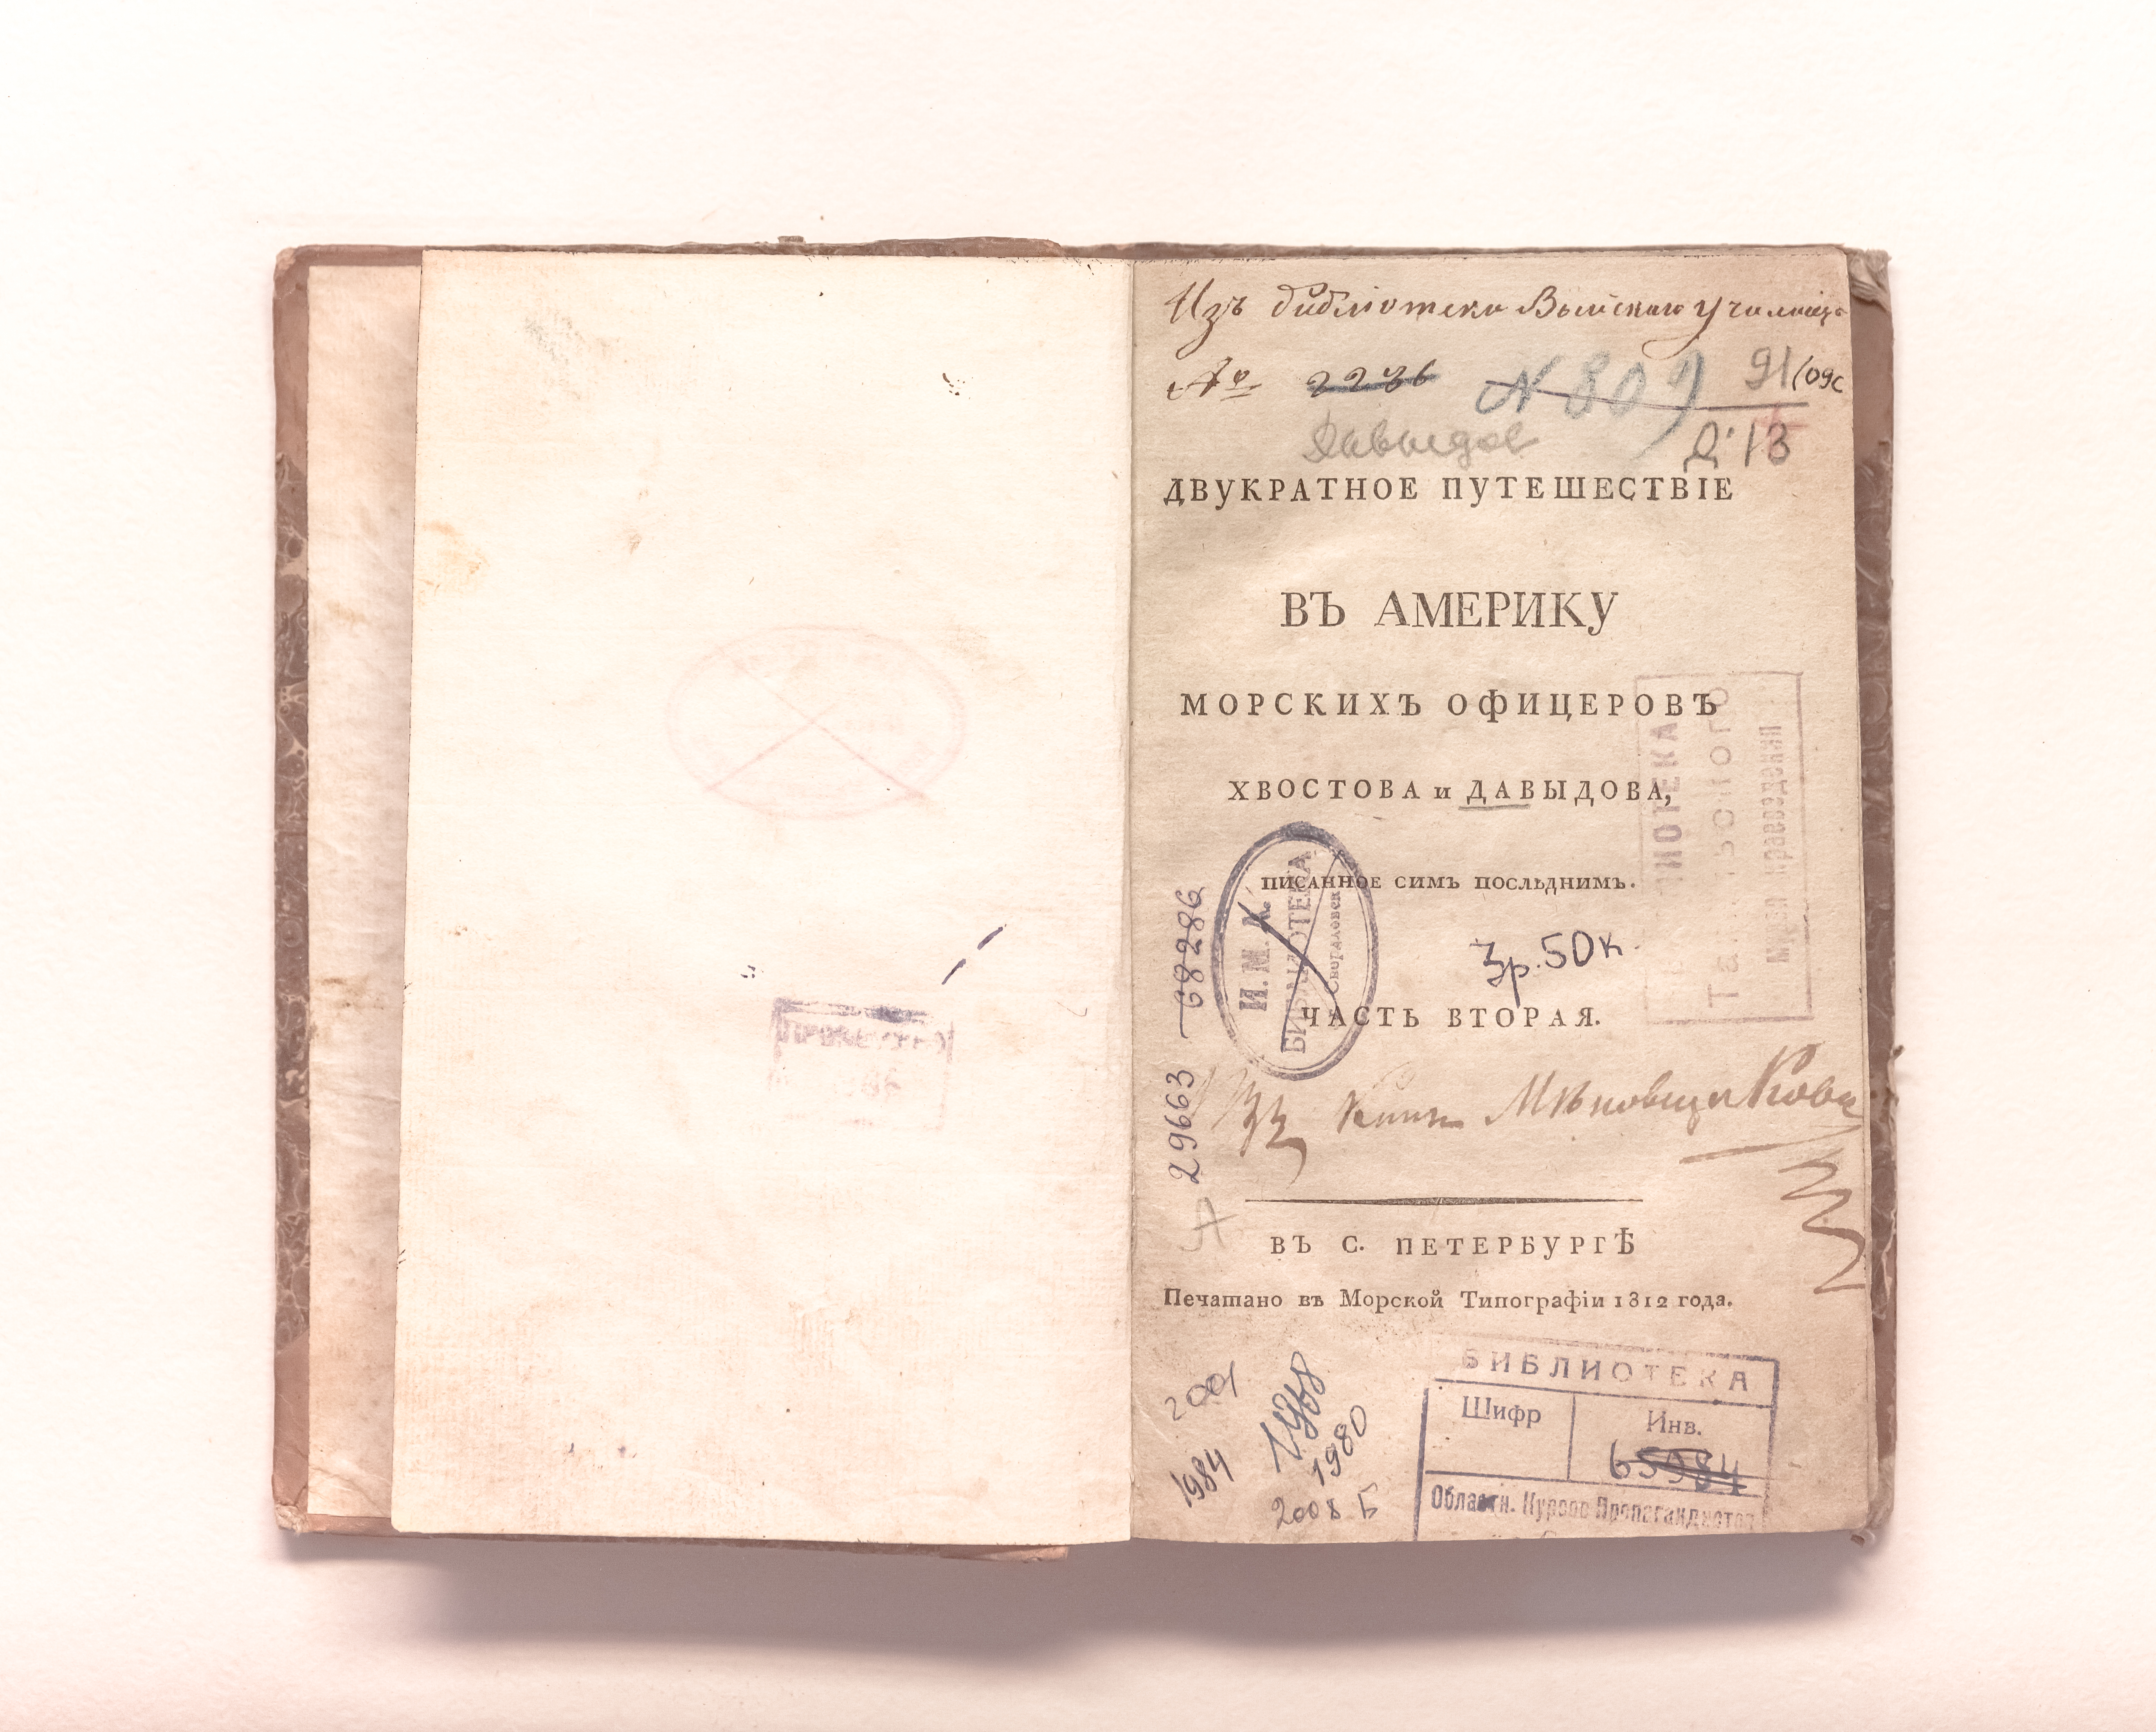 Изъ библіотеки Выйскаго училища
№ 2236 N 809 91(09с
Давыдов Д-13
ДВУКРАТНОЕ ПУТЕШЕСТВІЕ
ВЪ АМЕРИКУ
МОРСКИХЪ ОФИЦЕРОВЪ
ХВОСТОВА и ДАВЫДОВА,
писанное симъ послѣднимъ.
3р. 50к.
ЧАСТЬ ВТОРАЯ.
И. М. К.
БИБЛИОТЕКА
Свердловск
29663 68286
Изъ Книгъ Мѣновщикова
А
ВЪ С. ПЕТЕРБУРГѢ
Печатано въ Морской Типографіи 1812 года.
2001
1984
1980
2008 Б
БИБЛИОТЕКА
Шифр Инв.
65984
Областн. Курсов Пропагандистов